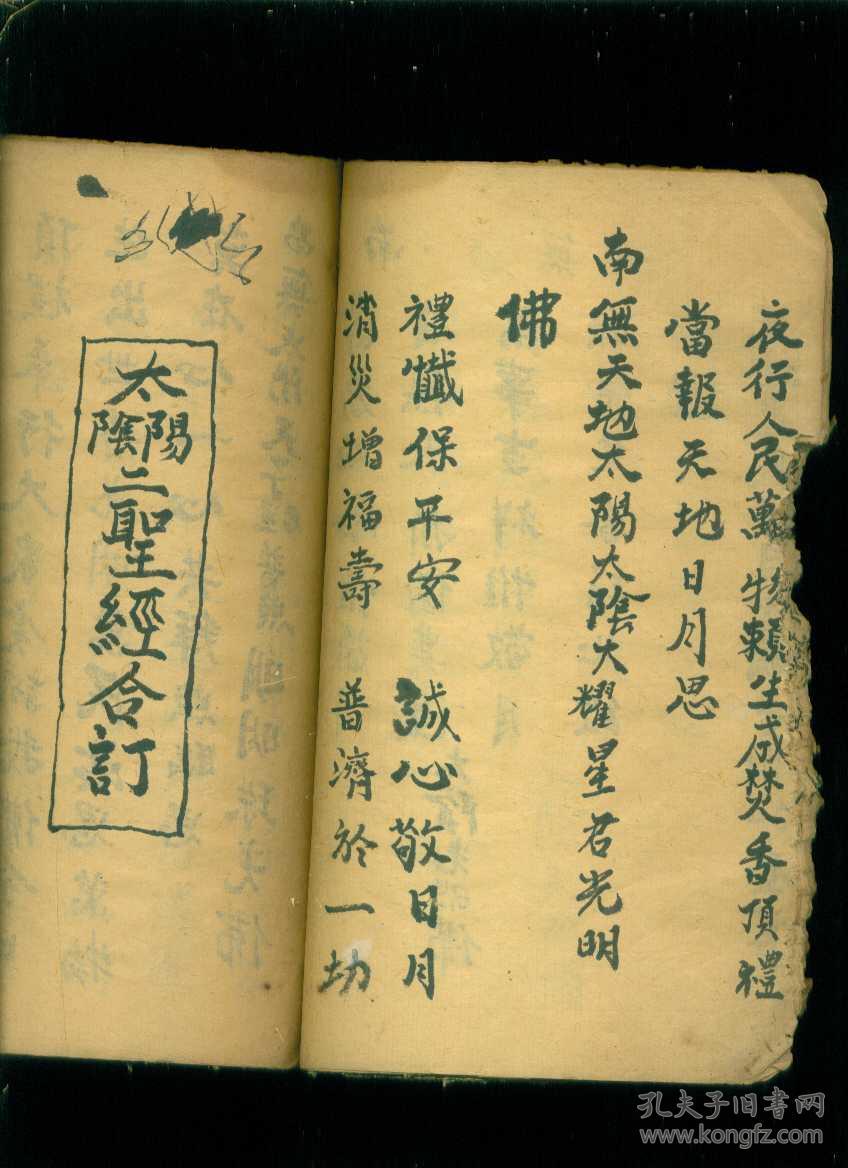 夜行人民萬物賴生成焚香頂禮
當報天地日月思
南無天地太陽太陰大耀星君光明
佛
禮懺保平安 誠心敬日月
消災增福壽 普濟於一切
太陽陰二聖經合訂
孔夫子旧书网
www.kongfz.com